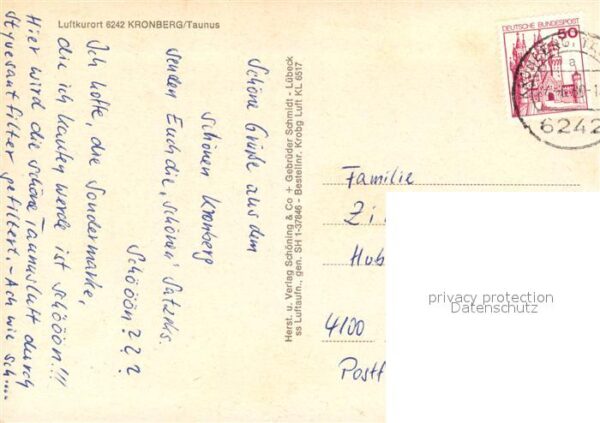 Luftkurort 6242 KRONBERG/Taunus
Schöne Grüße aus dem
schönen Kronberg
senden Euch die "schönen" Sutzels.
Schöööön???
Ich hoffe, die Sondermarke,
die ich kaufen werde ist schööön!!!
Hier wird die schöne Taunusluft durch
Styvesantfilter gefiltert. - Ach wie sch....
Herst. u. Verlag Schöning & Co + Gebrüder Schmidt - Lübeck
ss Luftaufn., gen. SH 1-37846 - Bestellnr. Krobg Luft KL 6517
DEUTSCHE BUNDESPOST
50
a
6242
Familie
Zi
Hub
4100
Postf
privacy protection
Datenschutz